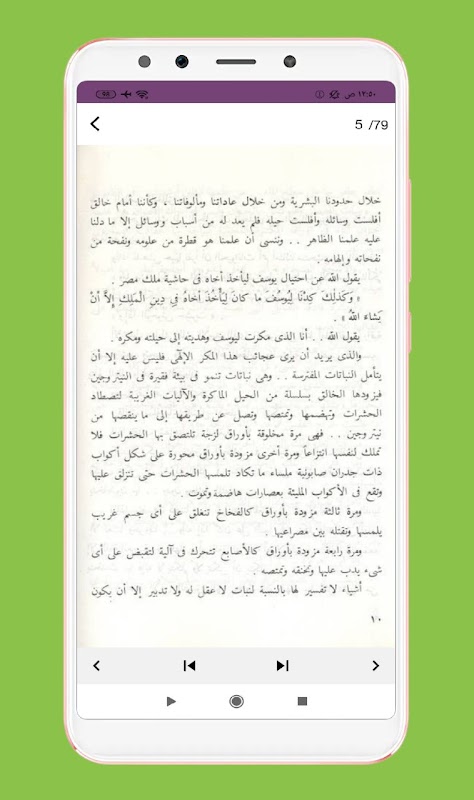 98
١٢:٥٠ ص
5 /79
خلال حدودنا البشرية ومن خلال عاداتنا ومألوفاتنا ، وكأننا أمام خالق
أفلست وسائله وأفلست حيله فلم يعد له من أسباب ووسائل إلا ما دلنا
عليه علمنا الظاهر . . وننسى أن علمنا هو قطرة من علومه ونفحة من
نفحاته وإلهامه .
يقول الله عن احتيال يوسف ليأخذ أخاه فى حاشية ملك مصر .
« وَكَذَلِكَ كِدْنَا لِيُوسُفَ مَا كَانَ لِيَأْخُذَ أَخَاهُ فِي دِينِ الْمَلِكِ إِلَّا أَنْ
يَشَاءَ اللَّهُ » .
يقول الله . . أنا الذى مكرت ليوسف وهديته إلى حيلته ومكره .
والذى يريد أن يرى عجائب هذا المكر الإلهى فليس عليه إلا أن
يتأمل النباتات المفترسة . . وهى نباتات تنمو فى بيئة فقيرة فى النيتروجين
فيزودها الخالق بسلسلة من الحيل الماكرة والآليات الغريبة لتصطاد
الحشرات وتهضمها وتمتصها وتصل عن طريقها إلى ما ينقصها من
نيتروجين . . فهى مرة مخلوقة بأوراق لزجة تلتصق بها الحشرات فلا
تملك لنفسها انتزاعاً ومرة أخرى مزودة بأوراق محورة على شكل أكواب
ذات جدران صابونية ملساء ما تكاد تلمسها الحشرات حتى تنزلق عليها
وتقع فى الأكواب المليئة بعصارات هاضمة وتموت .
ومرة ثالثة مزودة بأوراق كالفخاخ تنغلق على أى جسم غريب
يلمسها وتقتله بين مصراعيها .
ومرة رابعة مزودة بأوراق كالأصابع تتحرك فى آلية لتقبض على أى
شىء يدب عليها وتخنقه وتمتصه .
أشياء لا تفسير لها بالنسبة لنبات لا عقل له ولا تدبير إلا أن يكون
١٠